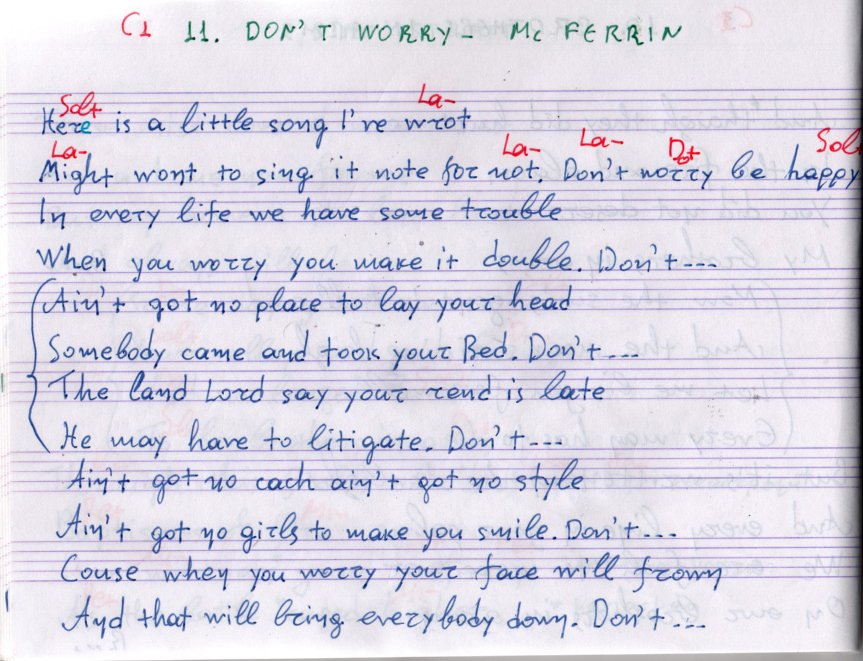 C1 11. DON'T WORRY - Mc FERRIN
Sol+ La-
Here is a little song I've wrot
La- La- La- Do+ Sol+
Might wont to sing it note for not. Don't worry be happy
In every life we have some trouble
When you worry you make it double. Don't---
Ain't got no place to lay your head
Somebody came and took your Bed. Don't---
The Land Lord say your rend is late
He may have to litigate. Don't---
Ain't got no cach ain't got no style
Ain't got no girls to make you smile. Don't---
Couse when you worry your face will frown
And that will bring everybody down. Don't---